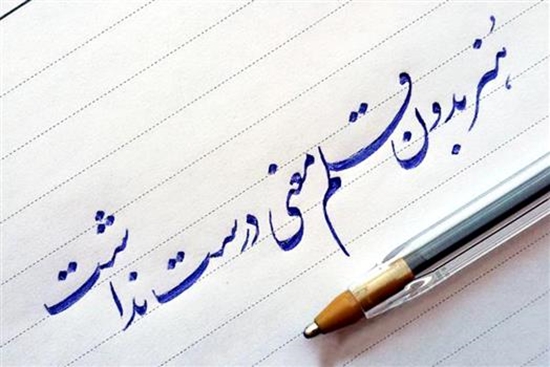 هنر بدون قلم معنی درست نداشت